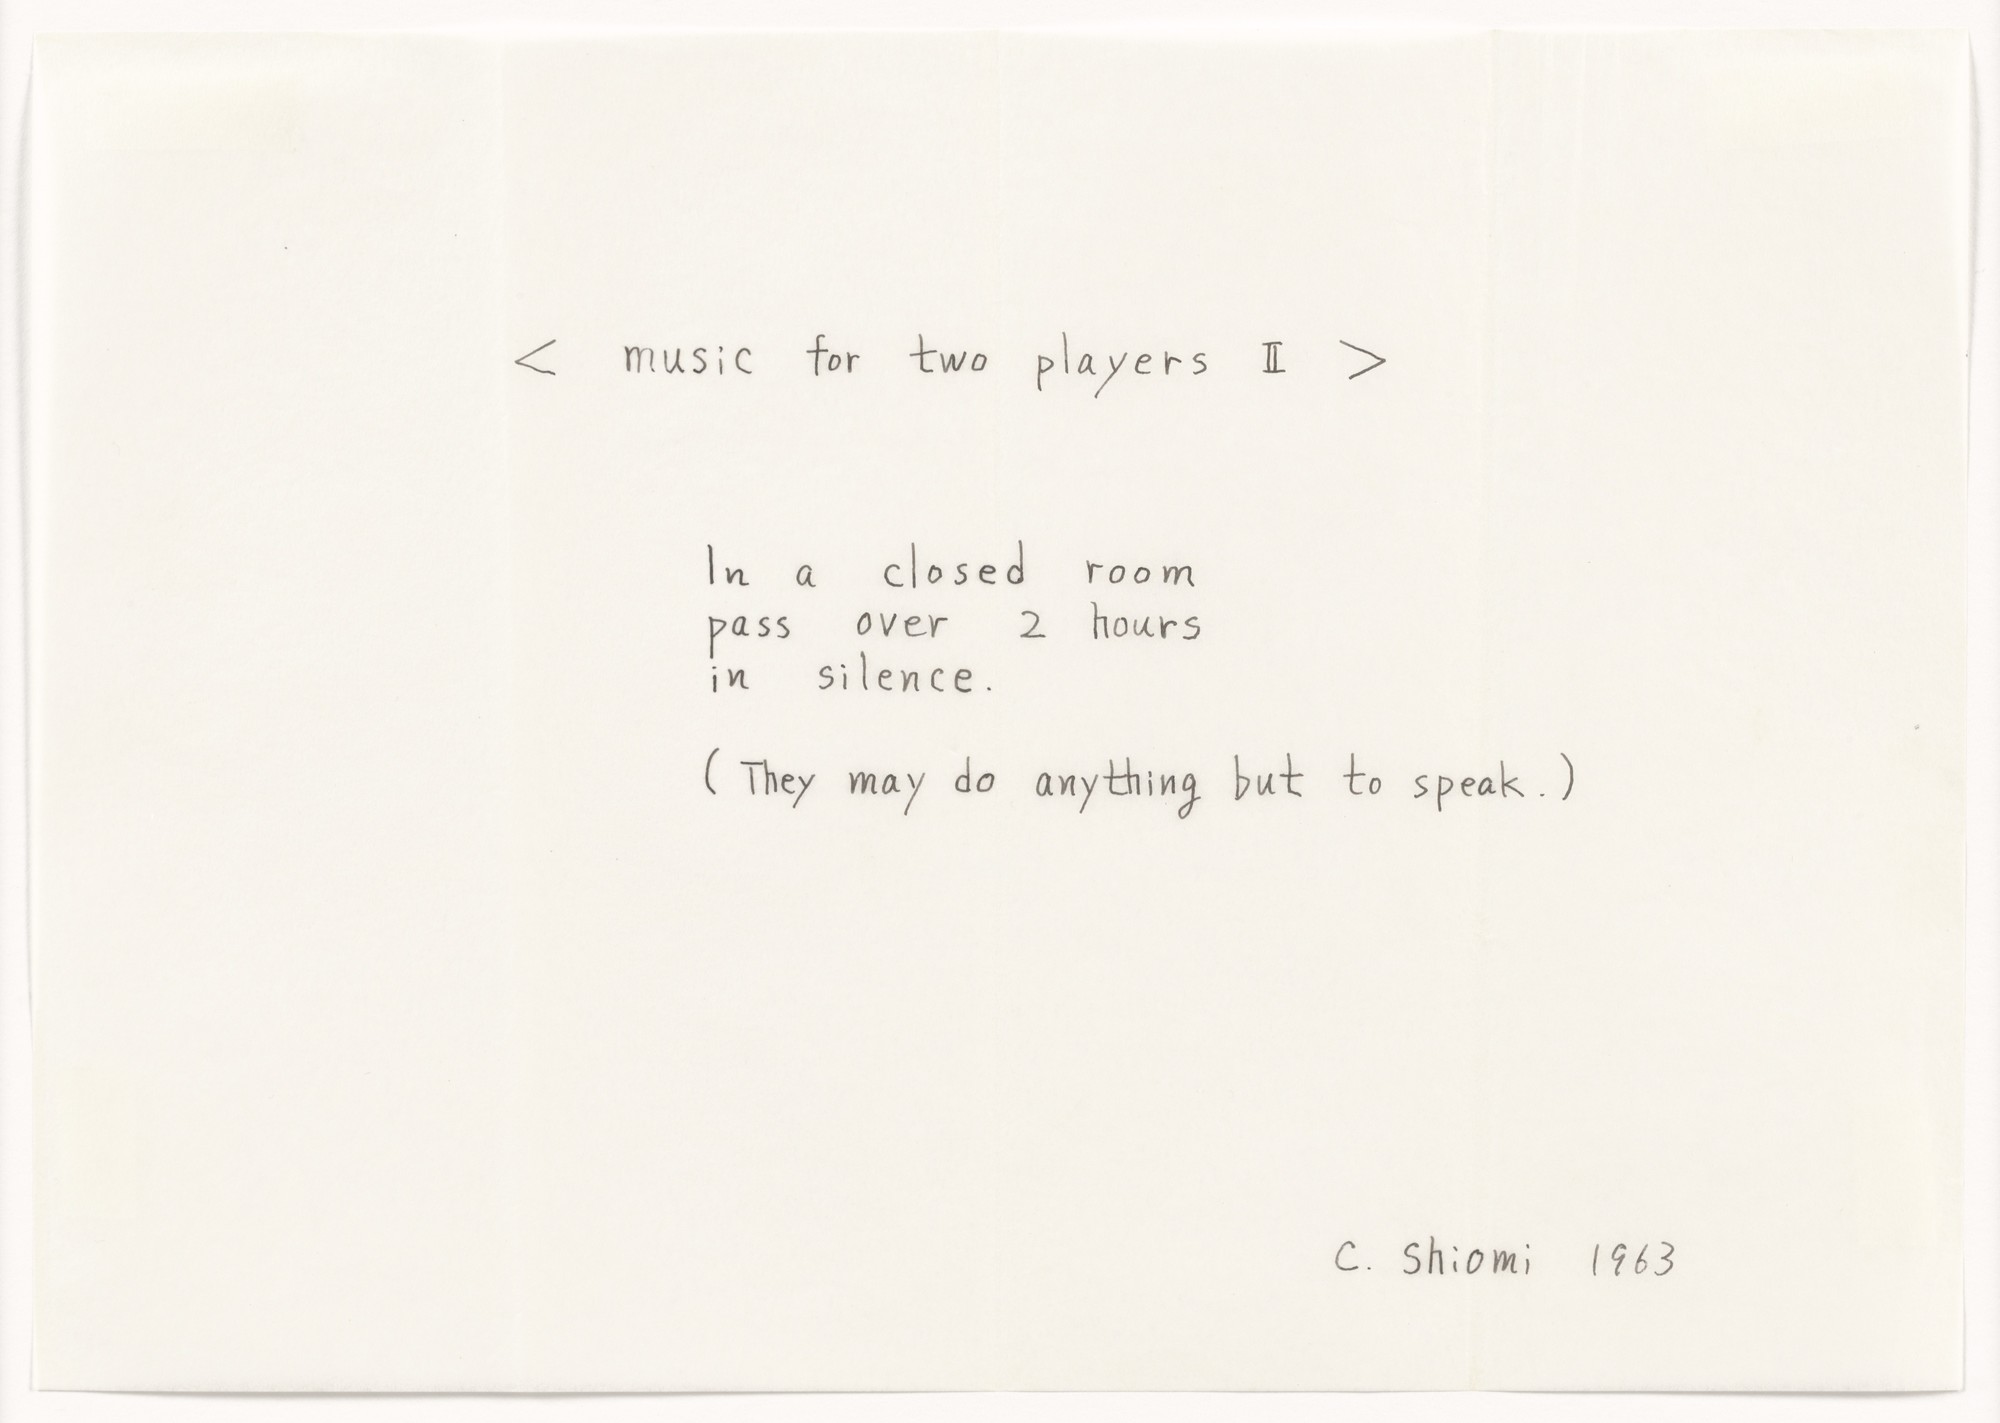 < music for two players II >
In a closed room
pass over 2 hours
in silence.
( They may do anything but to speak. )
C. Shiomi 1963